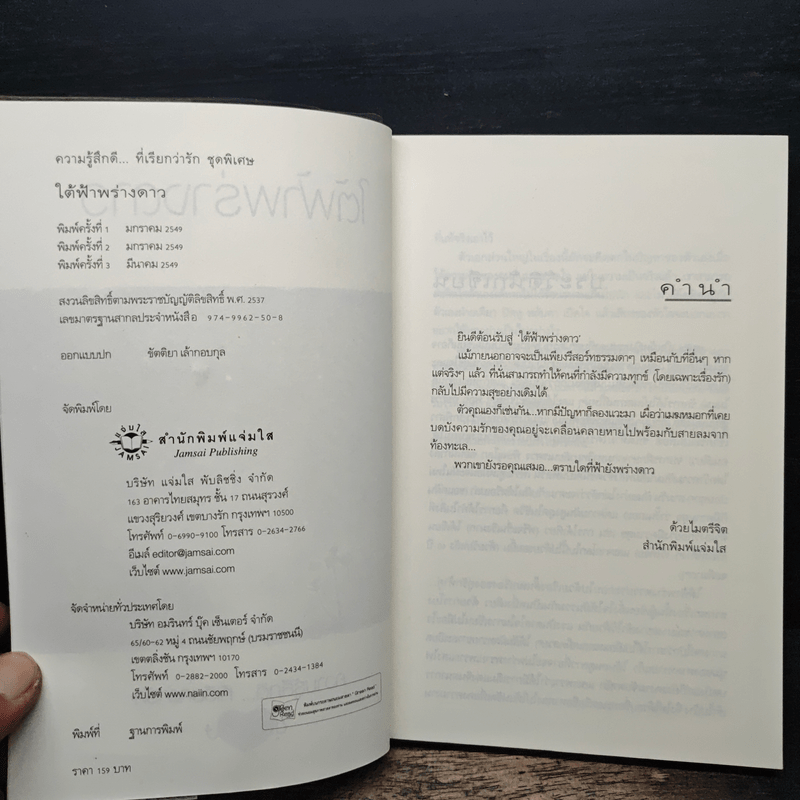 ความรู้สึกดี... ที่เรียกว่ารัก ชุดพิเศษ
ใต้ฟ้าพร่างดาว
พิมพ์ครั้งที่ 1 มกราคม 2549
พิมพ์ครั้งที่ 2 มกราคม 2549
พิมพ์ครั้งที่ 3 มีนาคม 2549
สงวนลิขสิทธิ์ตามพระราชบัญญัติลิขสิทธิ์ พ.ศ. 2537
เลขมาตรฐานสากลประจำหนังสือ 974-9962-50-8
ออกแบบปก ขัตติยา เล้ากอบกุล
จัดพิมพ์โดย
แจ่มใส
JAMSAI
สำนักพิมพ์แจ่มใส
Jamsai Publishing
บริษัท แจ่มใส พับลิชชิ่ง จำกัด
163 อาคารไทยสมุทร ชั้น 17 ถนนสุรวงศ์
แขวงสุริยวงศ์ เขตบางรัก กรุงเทพฯ 10500
โทรศัพท์ 0-6990-9100 โทรสาร 0-2634-2766
อีเมล์ editor@jamsai.com
เว็บไซต์ www.jamsai.com
จัดจำหน่ายทั่วประเทศโดย
บริษัท อมรินทร์ บุ๊ค เซ็นเตอร์ จำกัด
65/60-62 หมู่ 4 ถนนชัยพฤกษ์ (บรมราชชนนี)
เขตตลิ่งชัน กรุงเทพฯ 10170
โทรศัพท์ 0-2882-2000 โทรสาร 0-2434-1384
เว็บไซต์ www.naiin.com
Green Read
พิมพ์ที่ ฐานการพิมพ์
ราคา 159 บาท
คำนำ
ยินดีต้อนรับสู่ 'ใต้ฟ้าพร่างดาว'
แม้ภายนอกอาจจะเป็นเพียงรีสอร์ทธรรมดาๆ เหมือนกับที่อื่นๆ หาก
แต่จริงๆ แล้ว ที่นั่นสามารถทำให้คนที่กำลังมีความทุกข์ (โดยเฉพาะเรื่องรัก)
กลับไปมีความสุขอย่างเดิมได้
ตัวคุณเองก็เช่นกัน...หากมีปัญหาก็ลองแวะมา เผื่อว่าเมฆหมอกที่เคย
บดบังความรักของคุณอยู่จะเคลื่อนคลายหายไปพร้อมกับสายลมจาก
ท้องทะเล...
พวกเขายังรอคุณเสมอ...ตราบใดที่ฟ้ายังพร่างดาว
ด้วยไมตรีจิต
สำนักพิมพ์แจ่มใส